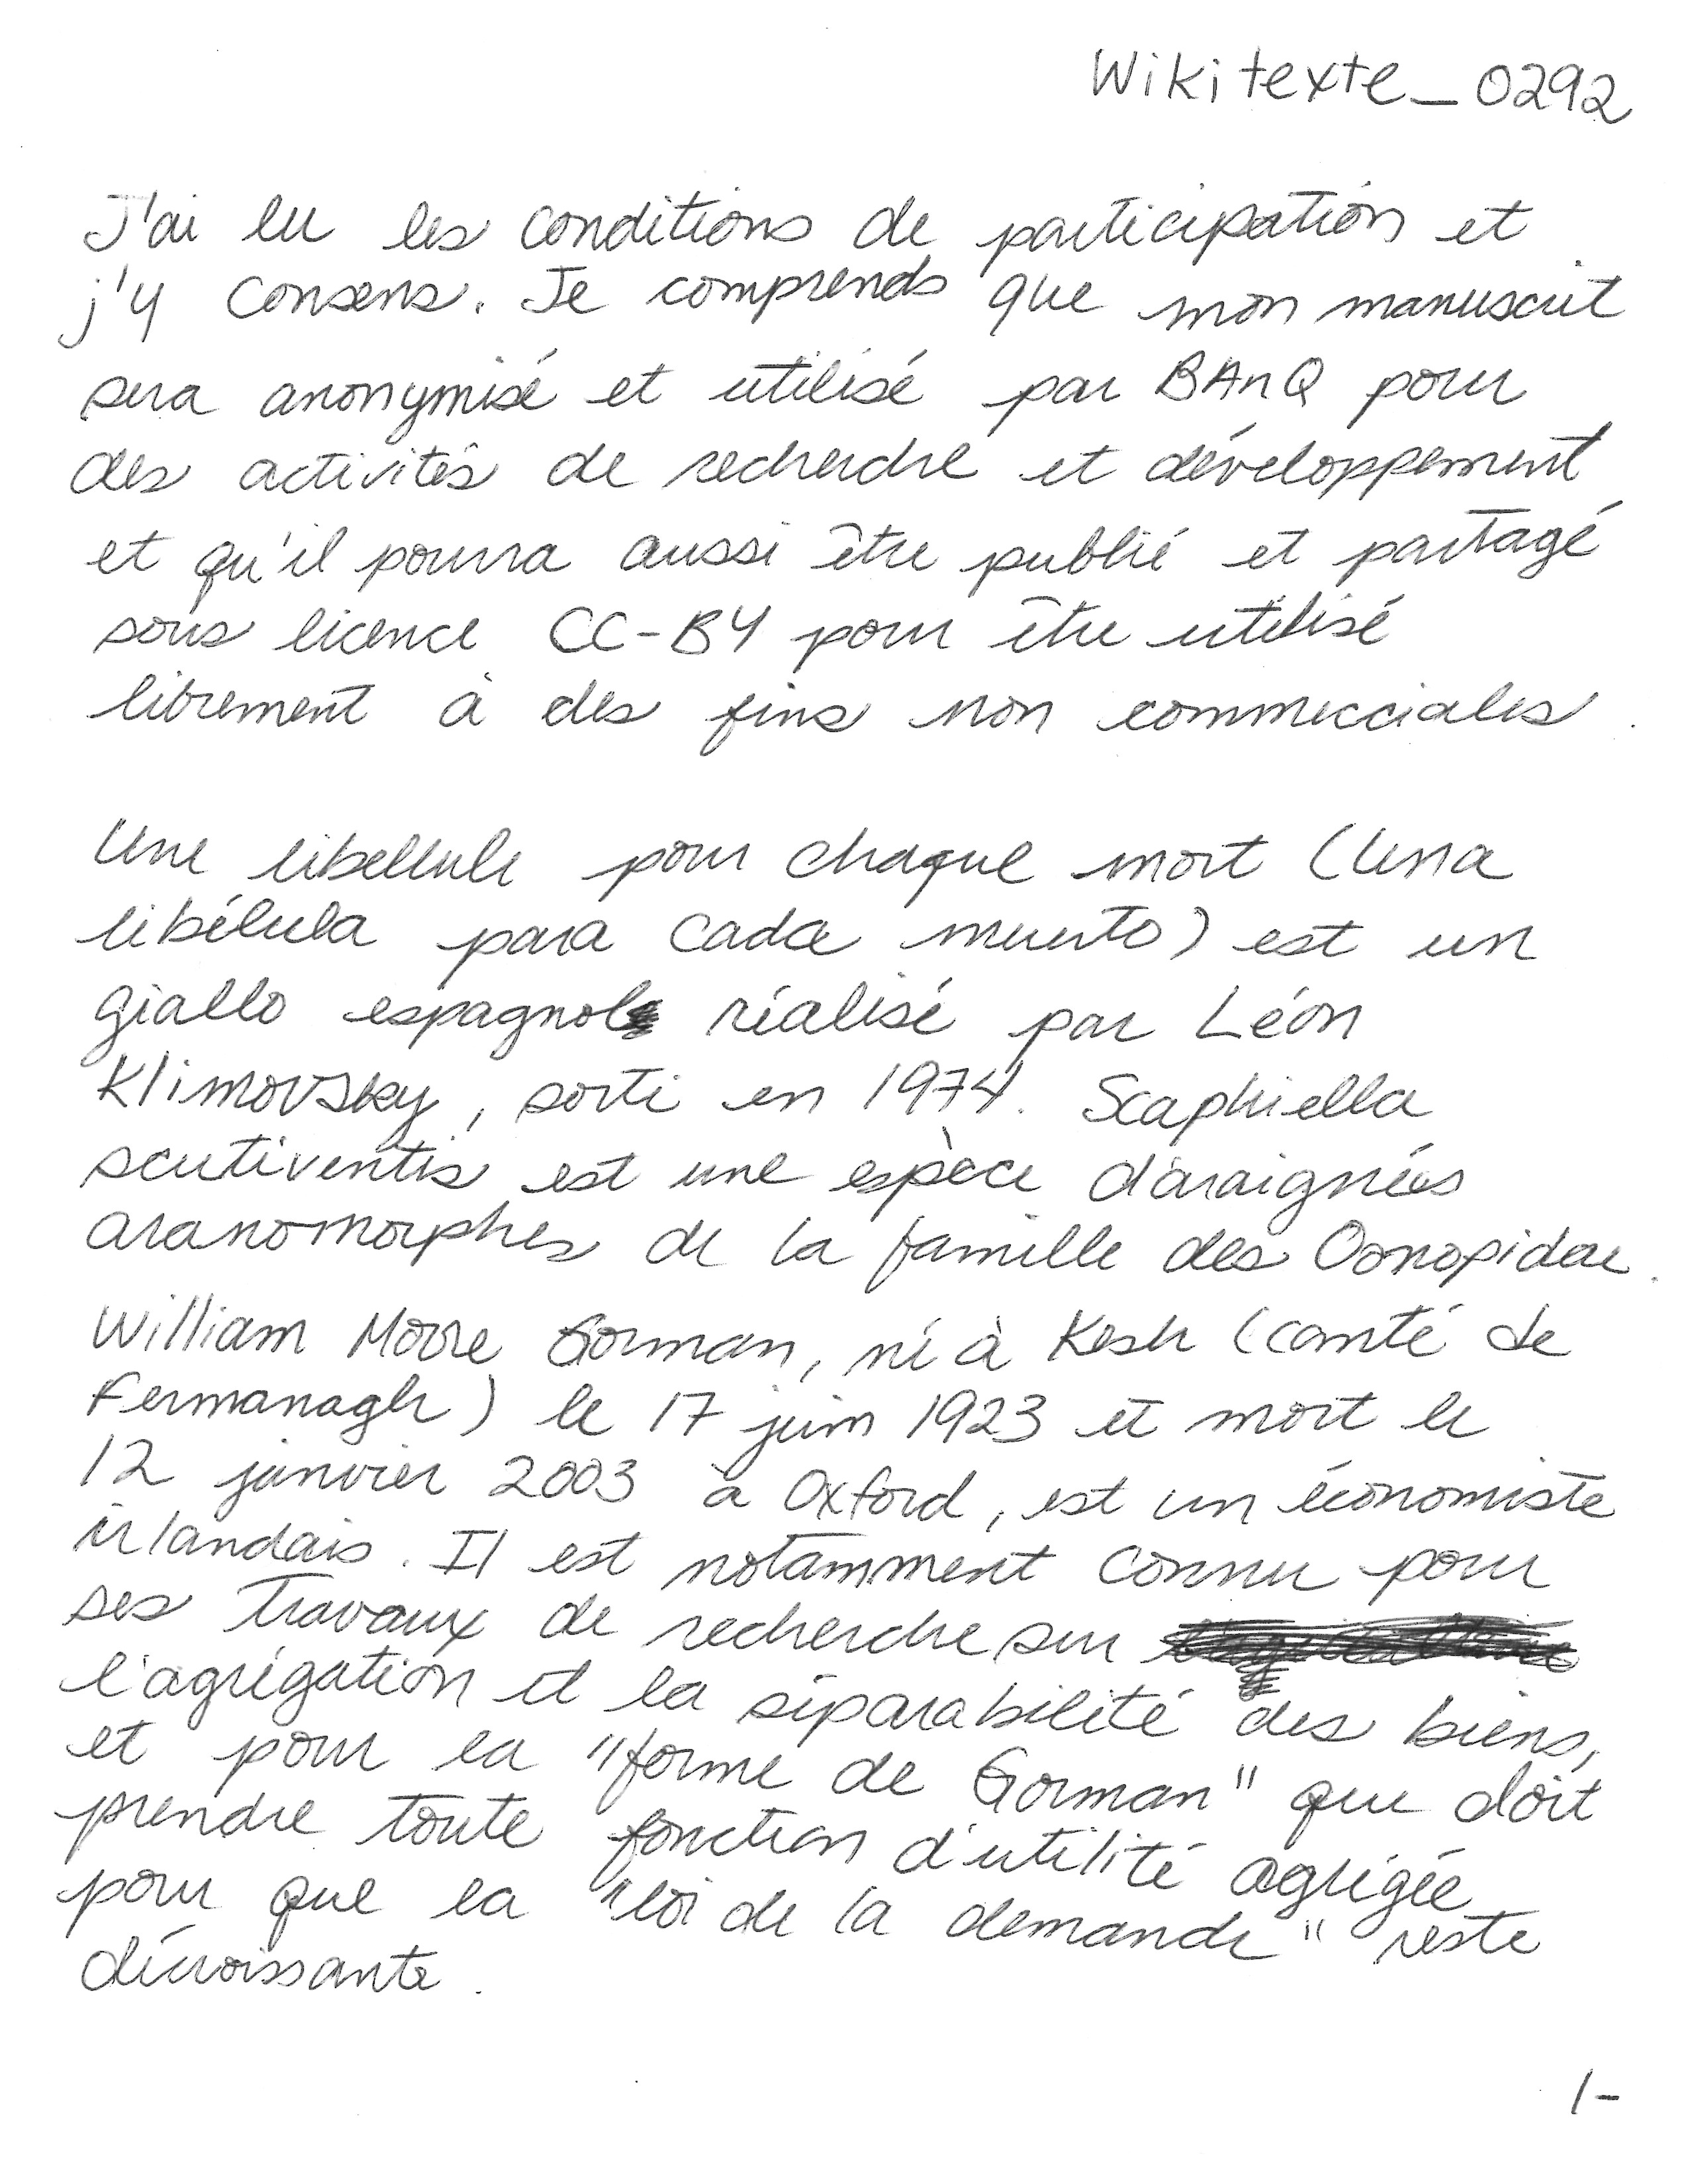 Wikitexte_0292
J'ai lu les conditions de participation et
j'y consens. Je comprends que mon manuscrit
sera anonymisé et utilisé par BAnQ pour
des activités de recherche et développement
et qu'il pourra aussi être publié et partagé
sous licence CC-BY pour être utilisé
librement à des fins non commerciales.
Une libellule pour chaque mort (Una
libélula para cada muerto) est un
giallo espagnol réalisé par Léon
Klimovsky, sorti en 1974. Scaphiella
scutiventis est une espèce d'araignées
aranomorphes de la famille des Oonopidae.
William Moore Gorman, né à Kesh (comté de
Fermanagh) le 17 juin 1923 et mort le
12 janvier 2003 à Oxford, est un économiste
irlandais. Il est notamment connu pour
ses travaux de recherche sur
l'agrégation et la séparabilité des biens,
et pour la "forme de Gorman" que doit
prendre toute fonction d'utilité agrégée
pour que la "loi de la demande" reste
décroissante.
1-